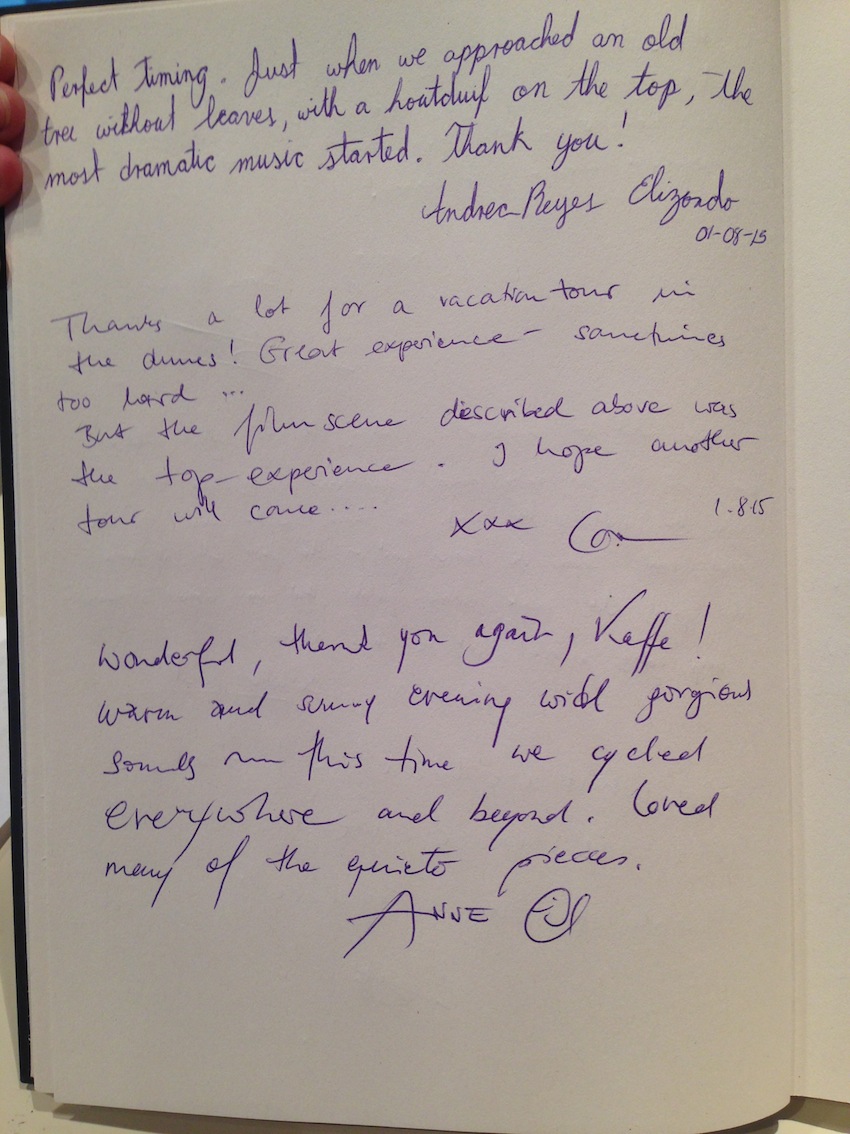 Perfect timing. Just when we approached an old
tree without leaves, with a houtduif on the top, the
most dramatic music started. Thank you!
Andrea Reyes Elizondo
01-08-15
Thanks a lot for a vacation tour in
the dunes! Great experience - sometimes
too hard ...
But the film scene described above was
the top-experience. I hope another
tour will come....
1.8.15
xxx
Wonderful, thank you again, Kaffe!
Warm and sunny evening with gorgious
sounds this time we cycled
everywhere and beyond. Loved
many of the quieto pieces.
ANNE